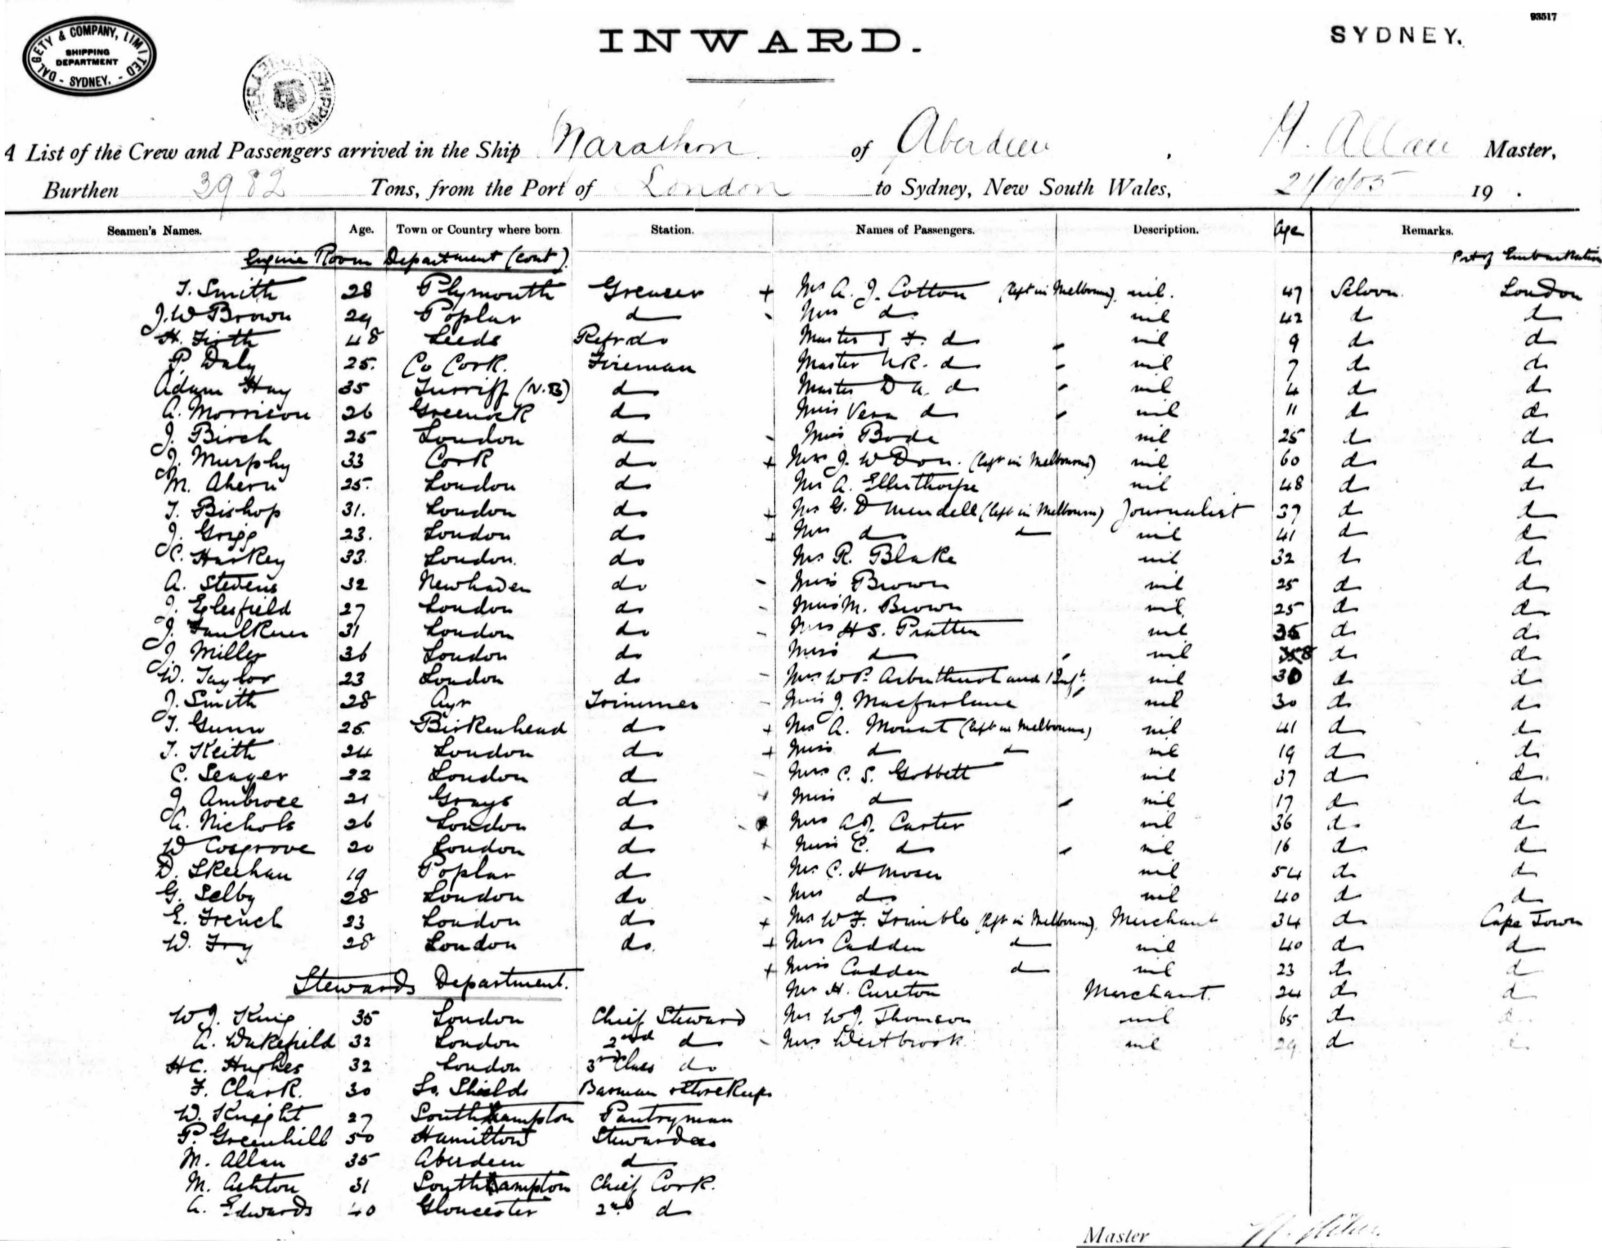 93517
DALGETY & COMPANY, LIMITED
SHIPPING
DEPARTMENT
- SYDNEY. -
INWARD.
SYDNEY.
A List of the Crew and Passengers arrived in the Ship Marathon of Aberdeen, Allan Master,
Burthen 3982 Tons, from the Port of London to Sydney, New South Wales, 21/10/05 19 .
Seamen's Names. Age. Town or Country where born Station. Names of Passengers. Description. Age Remarks.
Engine Room Department (cont). Port of Embarkation
T. Smith 28 Plymouth Greaser + Mr A. J. Cotton (left in Melbourne) nil. 47 Saloon London
J. W Brown 29 Poplar do - Mrs do nil 42 do do
H. Firth 48 Leeds Refr do Master do nil 9 do do
P. Daly 25. Co Cork. Fireman Master do nil 7 do do
Adam Hay 35 Turriff (N.B) do Master D A. do nil 4 do do
A. Morrison 26 Greenock do Miss Vera do nil 11 do do
J. Birch 25 London do - Miss Bode nil 25 do do
J. Murphy 33 Cork do + J. W Don. (left in Melbourne) nil 60 do do
M. Ahern 25. London do Mr A. Ellerthorpe nil 48 do do
T. Bishop 31. London do + Mr G. D Mendell (left in Melbourne) Journalist 37 do do
J. Grigg 23. London do + Mrs do do nil 41 do do
C. Harkey 33. London. do Mr R. Blake nil 32 do do
A. Stevens 32 Newhaven do - Miss Brown nil 25 do do
J. Eglesfield 27 London do - Miss M. Brown nil 25 do do
J. Faulkner 31 London do - Mrs H S. Pratten nil 35 do do
J. Miller 36 London do - Miss do nil 8 do do
W. Taylor 23 London do - Mrs W P. Arbuthnot and 1 Inft. nil 30 do do
J. Smith 28 Ayr Trimmer - Miss J. Macfarlane nil 30 do do
T. Gunn 25. Birkenhead do + Mr A. Mount (left in Melbourne) nil 41 do do
T. Keith 24 London do + Miss do do nil 19 do do
C. Seager 22 London do - Mrs C. S. Gobbett nil 37 do do.
J. Ambrose 21 Grays do + Miss do nil 17 do do
A. Nichols 26 London do - Mrs A J. Carter nil 36 do do
W Cosgrove 20 London do + Miss E. do nil 16 do do
D. Skeehan 19 Poplar do Mr C. H Moser nil 54 do do
G. Selby 28 London do - Mrs do nil 40 do do
E. French 23 London do + Mr W F. Trimble (left in Melbourne). Merchant 34 do Cape Town
W. Fry 28 London do. + Mrs Cadden do nil 40 do do
+ Miss Cadden do nil 23 do do
Stewards Department. Mr H. Cureton Merchant. 24 do do
W J. King 35 London Chief Steward Mr W J. Thomson nil 65 do do
A. Wakefield 32 London 2nd do - Mrs. Westbrook nil 29 do do
H C. Hughes 32 London 3rd Class do
F. Clark. 30 So. Shields Barman & Storekeepr
W. Knight 27 Southampton Pantryman
P. Greenhill 50 Hamilton Stewardess
M. Allan 35 Aberdeen do
M. Ashton 31 Southampton Chief Cook.
A. Edwards 40 Gloucester 2nd do
Master